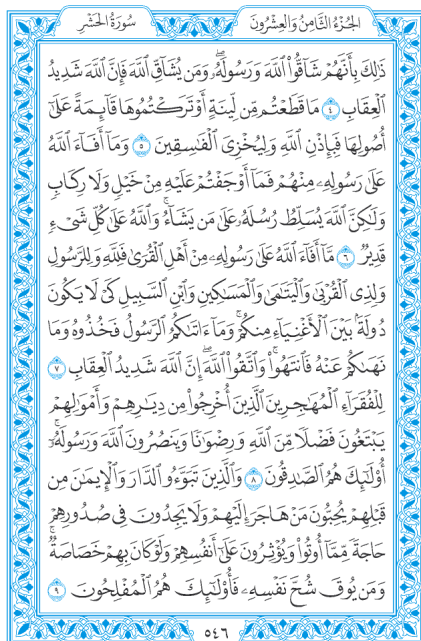 الجُزءُ الثَّامِنُ وَالعِشْرُونَ
سُورَةُ الحَشْرِ
ذَٰلِكَ بِأَنَّهُمْ شَآقُّوا۟ ٱللَّهَ وَرَسُولَهُۥ ۖ وَمَن يُشَآقِّ ٱللَّهَ فَإِنَّ ٱللَّهَ شَدِيدُ
ٱلْعِقَابِ ٤ مَا قَطَعْتُم مِّن لِّينَةٍ أَوْ تَرَكْتُمُوهَا قَآئِمَةً عَلَىٰٓ
أُصُولِهَا فَبِإِذْنِ ٱللَّهِ وَلِيُخْزِىَ ٱلْفَٰسِقِينَ ٥ وَمَآ أَفَآءَ ٱللَّهُ
عَلَىٰ رَسُولِهِۦ مِنْهُمْ فَمَآ أَوْجَفْتُمْ عَلَيْهِ مِنْ خَيْلٍ وَلَا رِكَابٍ
وَلَٰكِنَّ ٱللَّهَ يُسَلِّطُ رُسُلَهُۥ عَلَىٰ مَن يَشَآءُ ۚ وَٱللَّهُ عَلَىٰ كُلِّ شَىْءٍ
قَدِيرٌ ٦ مَّآ أَفَآءَ ٱللَّهُ عَلَىٰ رَسُولِهِۦ مِنْ أَهْلِ ٱلْقُرَىٰ فَلِلَّهِ وَلِلرَّسُولِ
وَلِذِى ٱلْقُرْبَىٰ وَٱلْيَتَٰمَىٰ وَٱلْمَسَٰكِينِ وَٱبْنِ ٱلسَّبِيلِ كَىْ لَا يَكُونَ
دُولَةًۢ بَيْنَ ٱلْأَغْنِيَآءِ مِنكُمْ ۚ وَمَآ ءَاتَىٰكُمُ ٱلرَّسُولُ فَخُذُوهُ وَمَا
نَهَىٰكُمْ عَنْهُ فَٱنتَهُوا۟ ۚ وَٱتَّقُوا۟ ٱللَّهَ ۖ إِنَّ ٱللَّهَ شَدِيدُ ٱلْعِقَابِ ٧
لِلْفُقَرَآءِ ٱلْمُهَٰجِرِينَ ٱلَّذِينَ أُخْرِجُوا۟ مِن دِيَٰرِهِمْ وَأَمْوَٰلِهِمْ
يَبْتَغُونَ فَضْلًا مِّنَ ٱللَّهِ وَرِضْوَٰنًا وَيَنصُرُونَ ٱللَّهَ وَرَسُولَهُۥٓ ۚ
أُو۟لَٰٓئِكَ هُمُ ٱلصَّٰدِقُونَ ٨ وَٱلَّذِينَ تَبَوَّءُو ٱلدَّارَ وَٱلْإِيمَٰنَ مِن
قَبْلِهِمْ يُحِبُّونَ مَنْ هَاجَرَ إِلَيْهِمْ وَلَا يَجِدُونَ فِى صُدُورِهِمْ
حَاجَةً مِّمَّآ أُوتُوا۟ وَيُؤْثِرُونَ عَلَىٰٓ أَنفُسِهِمْ وَلَوْ كَانَ بِهِمْ خَصَاصَةٌ ۚ
وَمَن يُوقَ شُحَّ نَفْسِهِۦ فَأُو۟لَٰٓئِكَ هُمُ ٱلْمُفْلِحُونَ ٩
٥٤٦